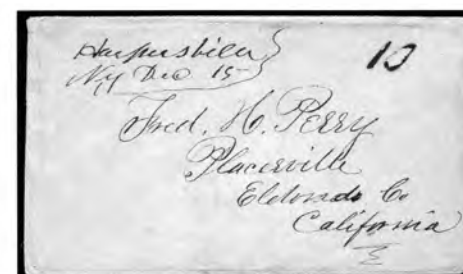 Harpersville 10
NY Dec 15
Fred. H. Perry
Placerville
Eldorado Co
California